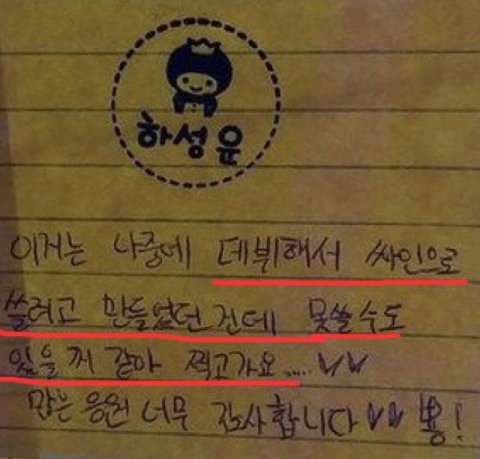 하성윤
이거는 나중에 데뷔해서 싸인으로
쓸려고 만들었던건데 못쓸수도
있을꺼 같아 찍고가요.....♥♥
많은 응원 너무 감사합니다♥♥ 뿅!